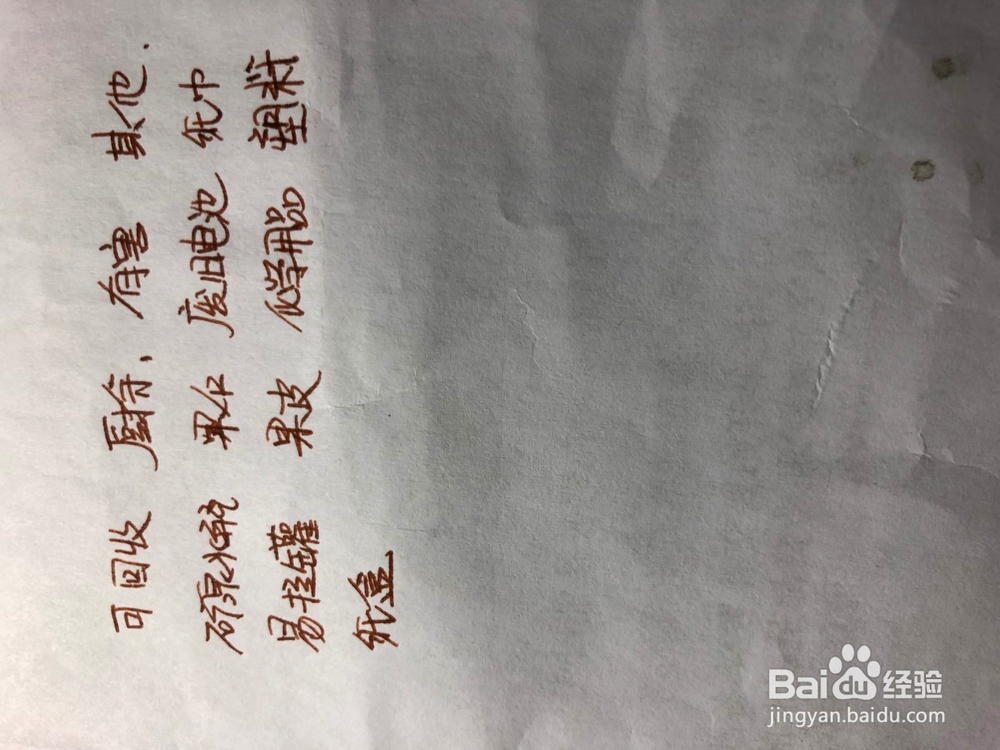 可回收 厨余、有害 其他.
矿泉水瓶 果仁 废旧电池 纸巾
易拉罐 果皮 化学用品 塑料
纸盒
Baidu 经验
jingyan.baidu.com